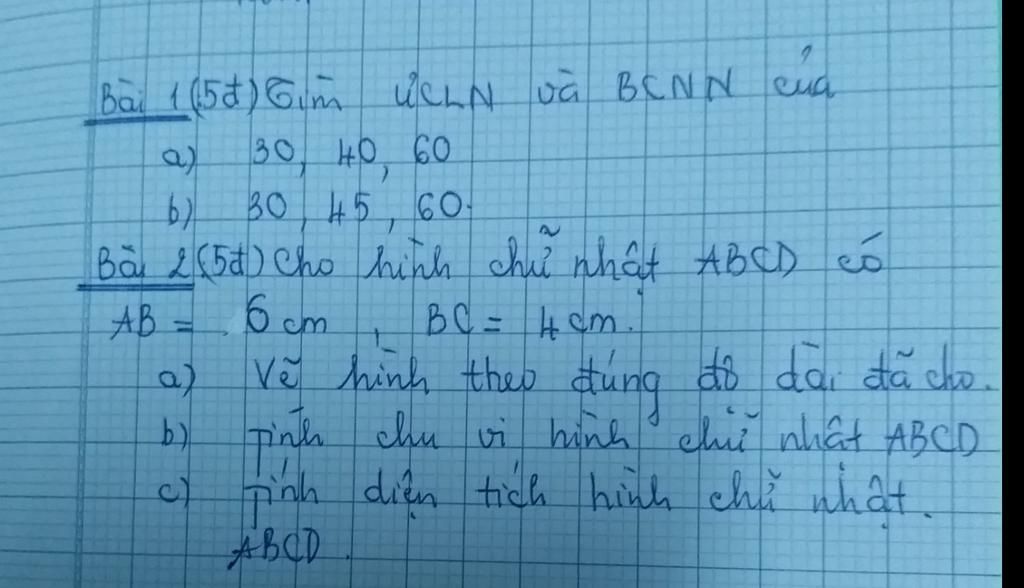 Bài 1 (5đ) Tìm ƯCLN và BCNN của
a) 30, 40, 60
b) 30, 45, 60.
Bài 2 (5đ) Cho hình chữ nhật ABCD có
AB = 6 cm, BC = 4 cm.
a) Vẽ hình theo đúng độ dài đã cho.
b) Tính chu vi hình chữ nhật ABCD
c) Tính diện tích hình chữ nhật.
ABCD.